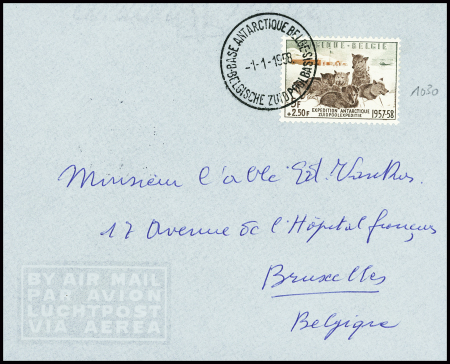 BASE ANTARCTIQUE BELGE
-1-1-1958
BELGISCHE ZUIDPOOLBASIS
BELGIE-BELGIQUE
5F
+2.50F
EXPEDITION ANTARCTIQUE
ZUIDPOOLEXPEDITIE
1957-58
1030
Monsieur l'abbé Ed.
17 Avenue de l'Hôpital français
Bruxelles
Belgique
BY AIR MAIL
PAR AVION
LUCHTPOST
VIA AEREA